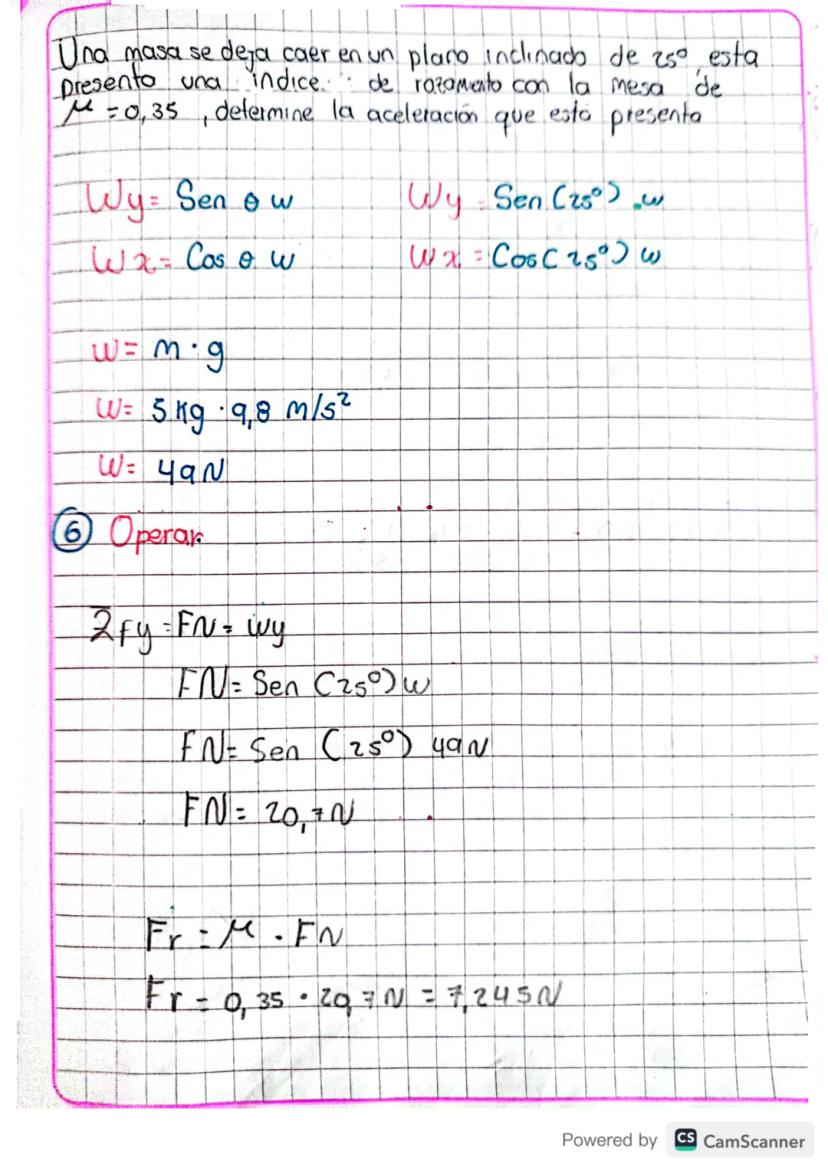 Una masa se deja caer en un plano inclinado de 25° esta
presenta una indice de rozamento con la mesa de
μ = 0,35 , determine la aceleración que esta presenta
Wy = Sen θ w Wy = Sen (25°) . w
Wx = Cos θ w Wx = Cos (25°) w
W = m · g
W = 5 Kg · 9,8 m/s²
W = 49N
⑥ Operar.
Σfy = FN = wy
FN = Sen (25°) w
FN = Sen (25°) 49N
FN = 20,7N
Fr = μ . FN
Fr = 0,35 · 20,7N = 7,245N
Powered by CS CamScanner